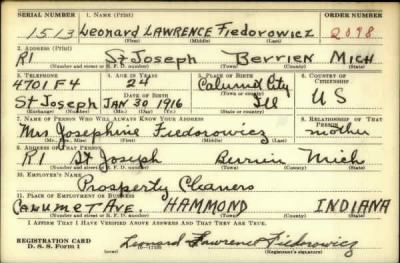 SERIAL NUMBER 1. NAME (Print) ORDER NUMBER
1513 Leonard LAWRENCE Fiedorowicz 2098
(First) (Middle) (Last)
2. ADDRESS (Print)
R1 St Joseph Berrien Mich
(Number and street or R. F. D. number) (Town) (County) (State)
3. TELEPHONE 4. AGE IN YEARS 5. PLACE OF BIRTH 6. COUNTRY OF CITIZENSHIP
4701 F4 24 Calumet City
DATE OF BIRTH (Town or county)
St Joseph JAN 30 1916 Ill US
(Exchange) (Number) (Mo.) (Day) (Yr.) (State or country)
7. NAME OF PERSON WHO WILL ALWAYS KNOW YOUR ADDRESS 8. RELATIONSHIP OF THAT PERSON
Mrs Josephine Fiedorowicz mother
(Mr., Mrs., Miss) (First) (Middle) (Last)
9. ADDRESS OF THAT PERSON
R1 St Joseph Berrien Mich
(Number and street or R. F. D. number) (Town) (County) (State)
10. EMPLOYER'S NAME
Prosperty Cleaners
11. PLACE OF EMPLOYMENT OR BUSINESS
CALUMET AVE. HAMMOND INDIANA
(Number and street or R. F. D. number) (Town) (County) (State)
I AFFIRM THAT I HAVE VERIFIED ABOVE ANSWERS AND THAT THEY ARE TRUE.
REGISTRATION CARD
D. S. S. Form 1 Leonard Lawrence Fiedorowicz
(Registrant's signature)